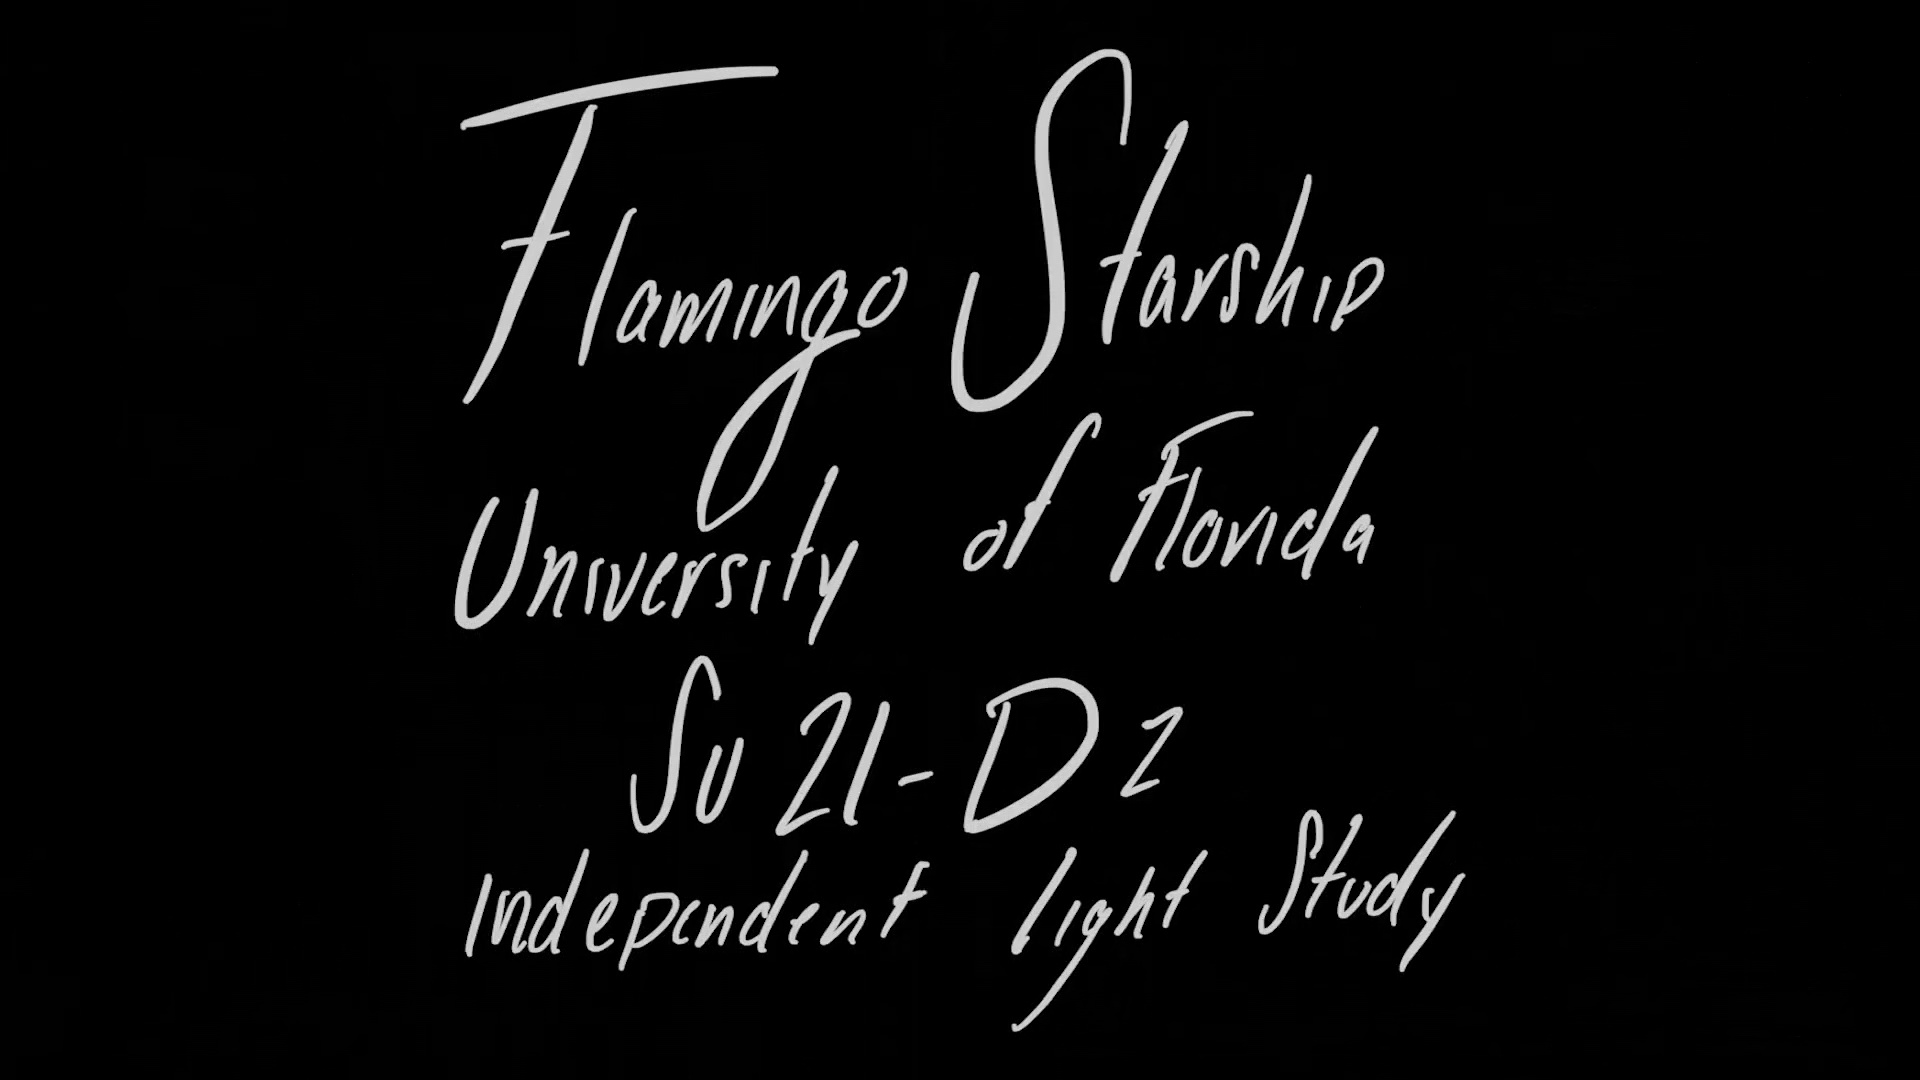 Flamingo Starship
University of Florida
Su 21-D2
Independent light Study